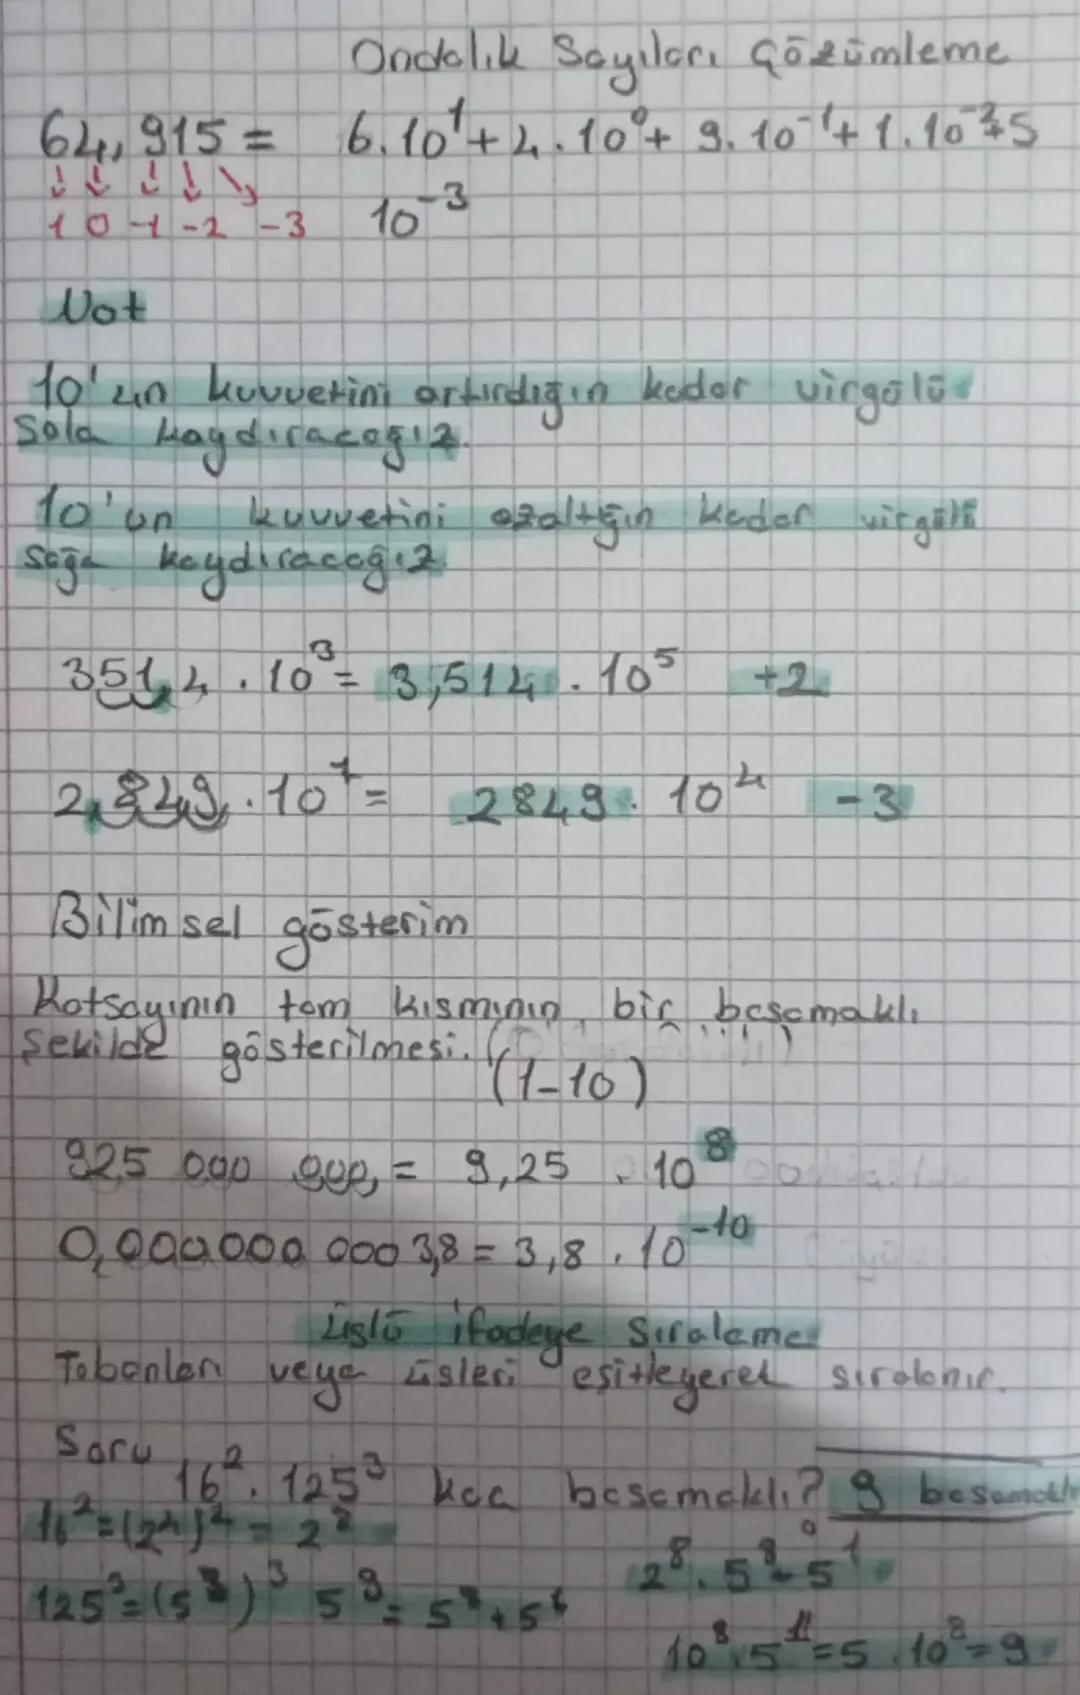 Ondalık Sayıları Çözümleme
64,915 = 6.10¹ + 4.10⁰ + 9.10⁻¹ + 1.10⁻² + 5
1 0 -1 -2 -3 10⁻³
Not
10'un kuvvetini artırdığın kadar virgülü
Sola kaydıracağız.
10'un kuvvetini azaltığın kadar virgülü
sağa kaydıracağız.
351,4 . 10³ = 3,514 . 10⁵ +2
2,849 . 10⁷ = 2849 . 10⁴ -3
Bilimsel gösterim
Katsayının tam kısmının bir basamaklı
şekilde gösterilmesi.
(1-10)
925 000 000, = 9,25 . 10⁸
0,000000 000 3,8 = 3,8 . 10⁻¹⁰
Üslü ifadeye Sıralama
Tabanları veya üsleri eşitleyerek sıralanır.
Soru
16² . 125³ kaç basamaklı? 9 basamaklı
16² = (2⁴)² = 2⁸
2⁸ . 5⁸ . 5¹
125³ = (5³)³ 5⁹ = 5⁸ + 5¹
10⁸ . 5¹ = 5 . 10⁸ = 9